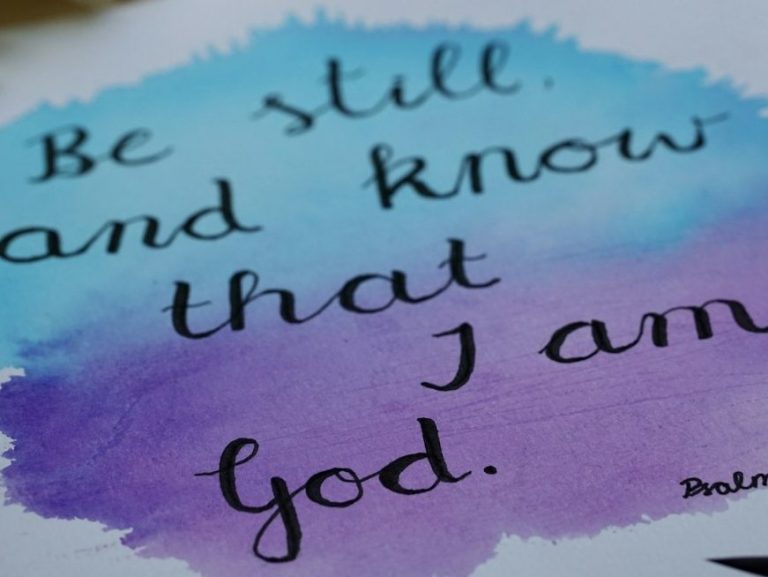 Be still,
and know
that
I am
God.
Psalm